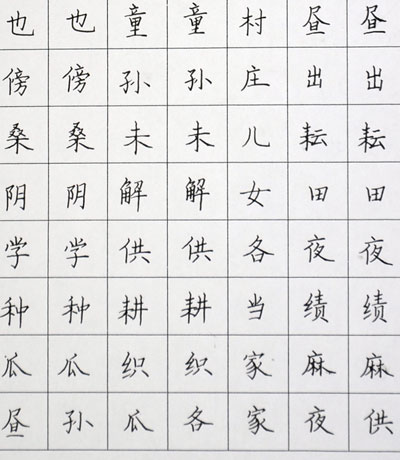 昼出耘田夜绩麻供
昼出耘田夜绩麻夜
村庄儿女各当家家
童孙未解供耕织各
童孙未解供耕织瓜
也傍桑阴学种瓜孙
也傍桑阴学种瓜昼